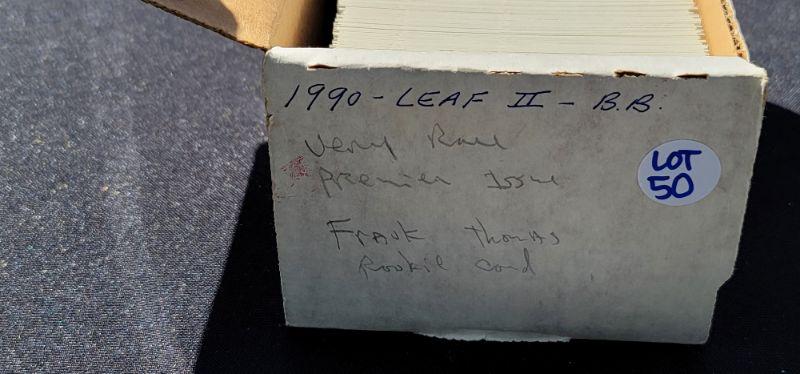 1990 - LEAF II - B.B.
Very Rare
Premier Issue
LOT
50
Frank Thomas
Rookie Card